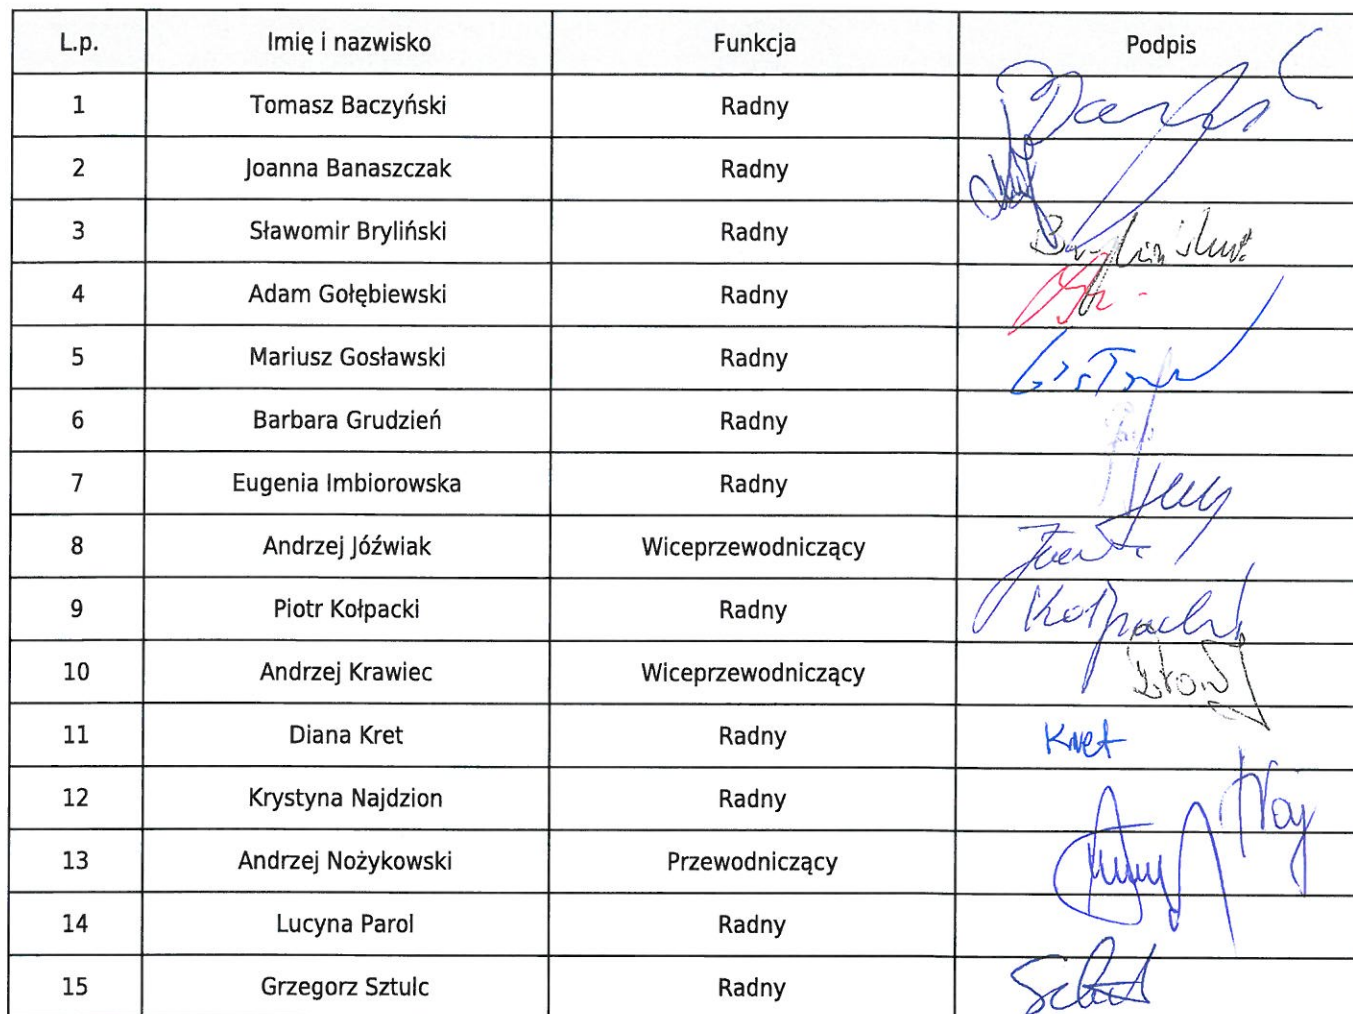 L.p. Imię i nazwisko Funkcja Podpis
1 Tomasz Baczyński Radny
2 Joanna Banaszczak Radny
3 Sławomir Bryliński Radny
4 Adam Gołębiewski Radny
5 Mariusz Gosławski Radny
6 Barbara Grudzień Radny
7 Eugenia Imbiorowska Radny
8 Andrzej Jóźwiak Wiceprzewodniczący
9 Piotr Kołpacki Radny Kołpacki
10 Andrzej Krawiec Wiceprzewodniczący
11 Diana Kret Radny Kret
12 Krystyna Najdzion Radny Naj
13 Andrzej Nożykowski Przewodniczący
14 Lucyna Parol Radny
15 Grzegorz Sztulc Radny